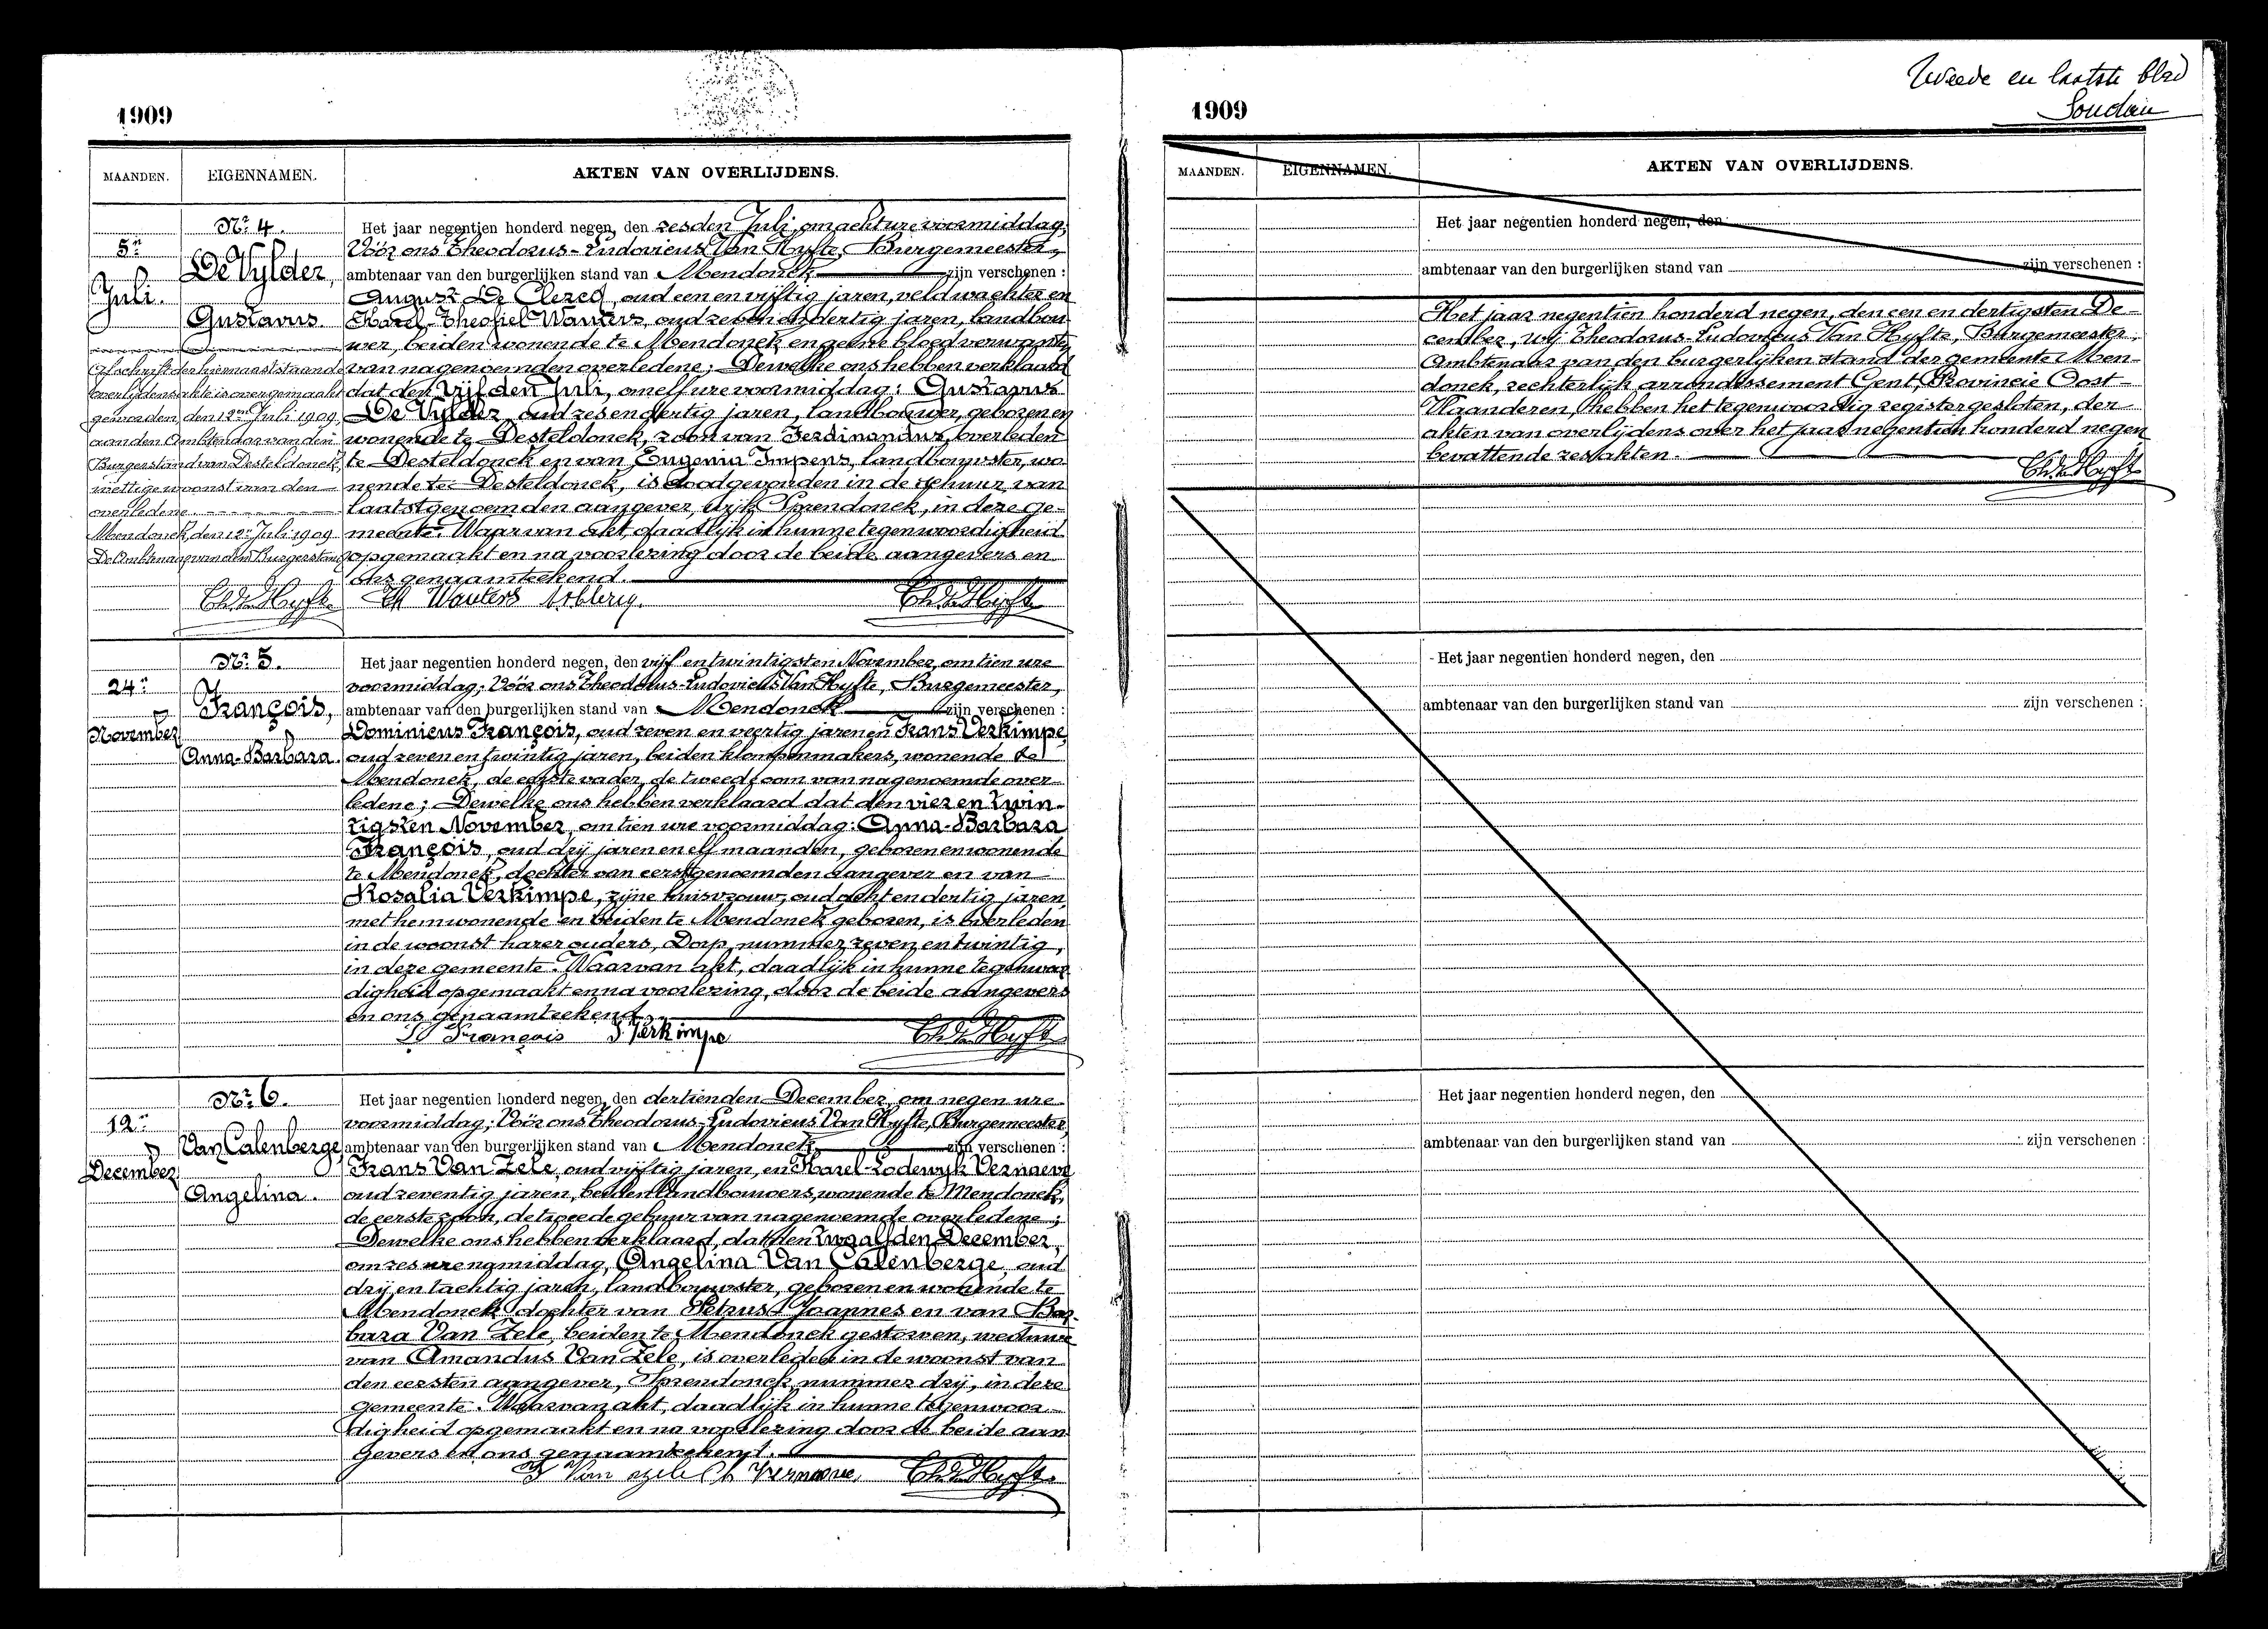 Tweede en laatste blad
1909
MAANDEN. EIGENNAMEN. AKTEN VAN OVERLIJDENS.
Nr. 4.
5n
Juli.
De Vylder,
Gustavus.
Het jaar negentien honderd negen, den zesden Juli, om acht ure voormiddag,
Vóór ons Theodorus-Ludovicus Van Hyfte, Burgemeester,
ambtenaar van den burgerlijken stand van Mendonck zijn verschenen :
August De Clercq, oud een en vijftig jaren, veldwachter en
Karel-Theofiel Wauters, oud zeven en dertig jaren, landbou-
wer, beiden wonende te Mendonck en geene bloedverwanten
van nagenoemden overledene; Dewelke ons hebben verklaard
dat den vijfden Juli, om elf ure voormiddag: Gustavus
De Vylder, oud zes en dertig jaren, landbouwer, geboren en
wonende te Desteldonck, zoon van Ferdinandus, overleden
te Desteldonck en van Eugenia Impens, landbouwster, wo-
nende te Desteldonck, is dood gevonden in de schuur van
laatstgenoemden aangever, wijk Sprendonck, in deze ge-
meente. Waarvan akt, daadlijk in hunne tegenwoordigheid
opgemaakt en na voorlezing door de beide aangevers en
ons genaamteekend.
Afschrift der hiernaaststaande
overlijdensakte is overgemaakt
geworden, den 12n Juli 1909,
aan den Ambtenaar van den
Burgerstand van Desteldonck,
wettige woonst van den
overledene.
Mendonck, den 12n Juli 1909
De Ambtenaar van den Burgerstand
Th Wauters
Nr. 5.
24n
November
François,
Anna-Barbara.
Het jaar negentien honderd negen, den vijf en twintigsten November, om tien ure
voormiddag; Vóór ons Theodorus-Ludovicus Van Hyfte, Burgemeester,
ambtenaar van den burgerlijken stand van Mendonck zijn verschenen :
Dominicus François, oud zeven en veertig jaren en Frans Verkimpe,
oud zeven en twintig jaren, beiden klompenmakers, wonende te
Mendonck, de eerste vader, de tweede oom van nagenoemde over-
ledene; Dewelke ons hebben verklaard dat den vier en twin-
tigsten November, om tien ure voormiddag: Anna-Barbara
François, oud drij jaren en elf maanden, geboren en wonende
te Mendonck, dochter van eerstgenoemden aangever en van
Rosalia Verkimpe, zijne huisvrouw, oud acht en dertig jaren,
met hem wonende en beiden te Mendonck geboren, is overleden
in de woonst harer ouders, Dorp, nummer zeven en twintig,
in deze gemeente. Waarvan akt, daadlijk in hunne tegenwoor-
digheid opgemaakt en na voorlezing, door de beide aangevers
en ons genaamteekend.
D François F. Verkimpe
Nr. 6.
12n
December
Van Calenberge,
Angelina.
Het jaar negentien honderd negen, den dertienden December, om negen ure
voormiddag; Vóór ons Theodorus-Ludovicus Van Hyfte, Burgemeester,
ambtenaar van den burgerlijken stand van Mendonck zijn verschenen :
Frans Van Zele, oud vijftig jaren, en Karel-Lodewijk Vernaeve
oud zeventig jaren, beiden landbouwers, wonende te Mendonck,
de eerste zoon, de tweede gebuur van nagenoemde overledene;
Dewelke ons hebben verklaard, dat den twaalfden December,
om zes ure namiddag, Angelina Van Calenberge, oud
drij en tachtig jaren, landbouwster, geboren en wonende te
Mendonck, dochter van Petrus-Joannes en van Bar-
bara Van Zele, beiden te Mendonck gestorven, weduwe
van Amandus Van Zele, is overleden in de woonst van
den eersten aangever, Sprendonck nummer drij, in deze
gemeente. Waarvan akt, daadlijk in hunne tegenwoor-
digheid opgemaakt en na voorlezing door de beide aan-
gevers en ons genaamteekend.
F Van Zele Ch Vernaeve
1909
MAANDEN. EIGENNAMEN. AKTEN VAN OVERLIJDENS.
Het jaar negentien honderd negen, den
ambtenaar van den burgerlijken stand van zijn verschenen :
Het jaar negentien honderd negen, den een en dertigsten De-
cember, wij Theodorus-Ludovicus Van Hyfte, Burgemeester,
Ambtenaar van den burgerlijken stand der gemeente Men-
donck, rechterlijk arrondissement Gent, Provincie Oost-
Vlaanderen, hebben het tegenwoordig register gesloten, der
akten van overlijdens over het jaar negentien honderd negen
bevattende zes akten.
Het jaar negentien honderd negen, den
ambtenaar van den burgerlijken stand van zijn verschenen :
Het jaar negentien honderd negen, den
ambtenaar van den burgerlijken stand van zijn verschenen :